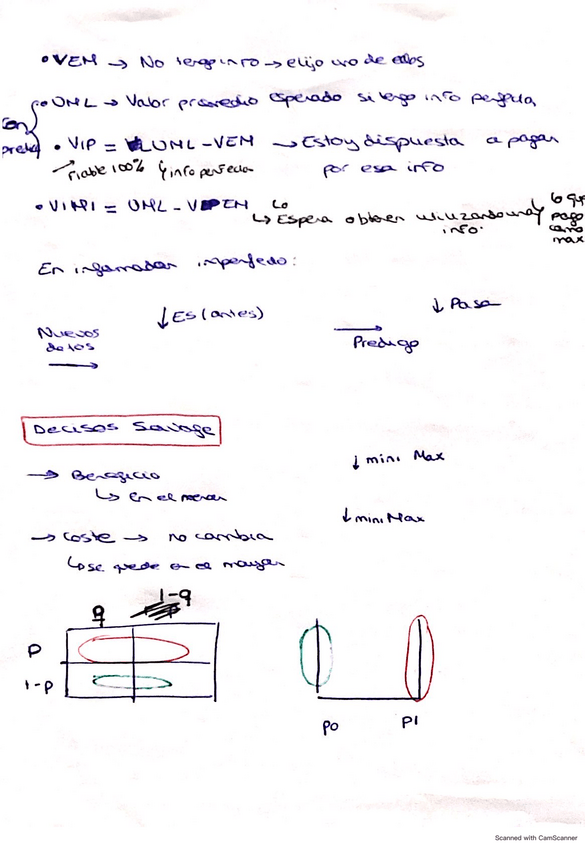 • VEM → No tengo info → elijo uno de ellos
• UML → Valor promedio esperado si tengo info perfecta
Con
• VIP = UML - VEM → Estoy dispuesta a pagar
→ Fiable 100% y info perfecta por esa info
• VIMI = UML -
↳ Espera obtener utilizando una info.
lo que
pago
como
max
En información imperfecta:
↓ Es (antes) ↓ Pasa
Nuevos
datos
→
→
Predigo
Decisos Savage
→ Beneficio ↓ mini Max
↳ En el menor
→ Coste → no cambia ↓ mini Max
↳ se quede en el mayor
q 1-q
P
1-P
P0 P1
Scanned with CamScanner